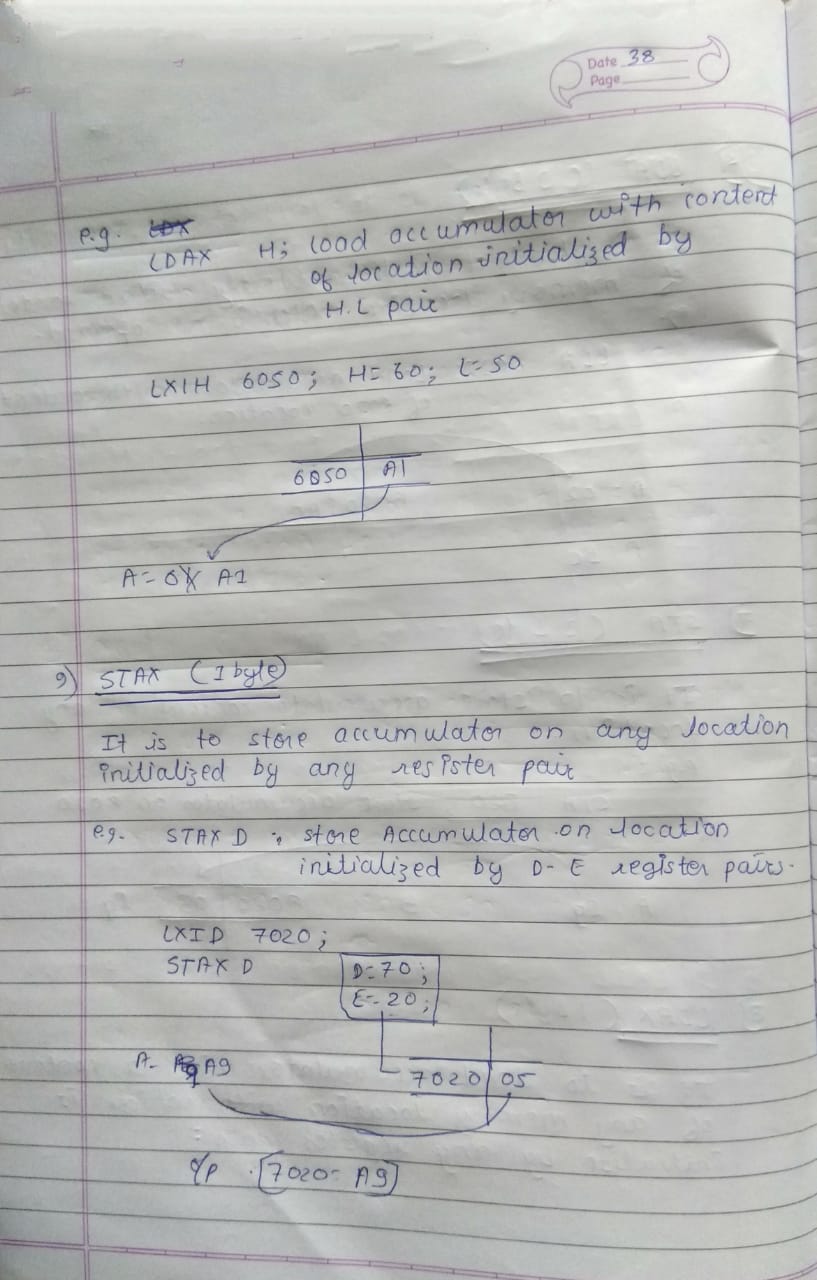 Date 38
Page
e.g. LDX
LDAX H; load accumulator with content
of location initialized by
H.L pair
LXIH 6050; H= 60; L= 50
6050 A1
A= A1
9) STAX (1 byte)
It is to store accumulator on any location
initialized by any resister pair
e.g. STAX D ; store Accumulator on location
initialized by D-E register pairs.
LXID 7020;
STAX D
D=70;
E=20;
A- A9
7020 05
o/p [7020- A9]